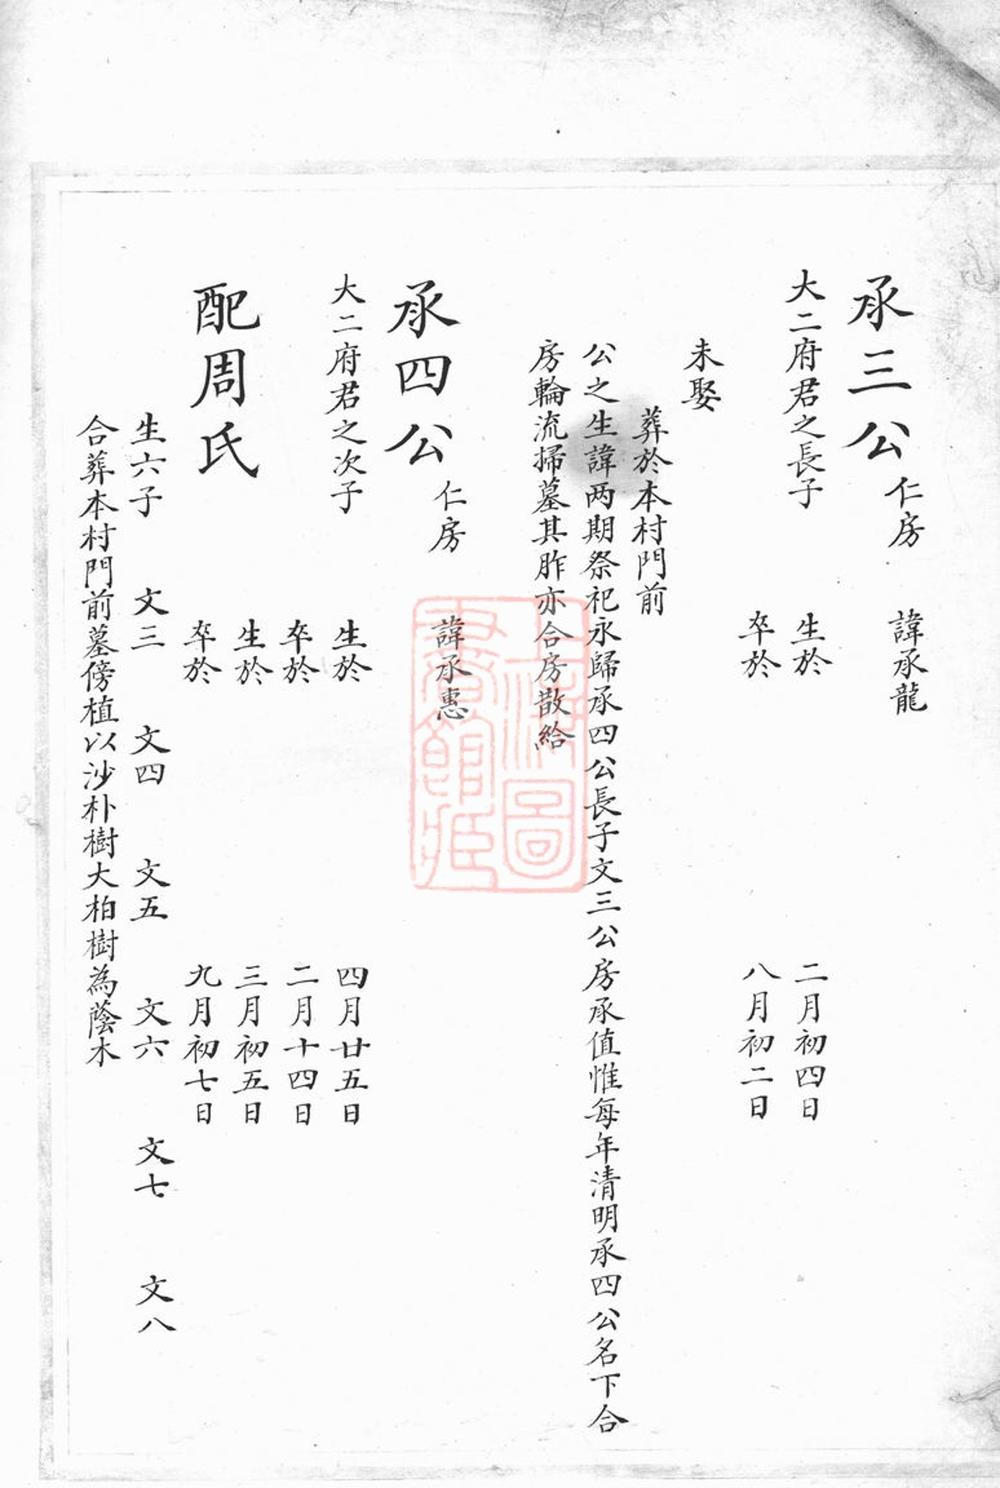 承三公 仁房 諱承龍
大二府君之長子 生於 二月初四日
卒於 八月初二日
未娶
葬於本村門前
公之生諱两期祭祀永歸承四公長子文三公房承值惟每年清明承四公名下合
房輪流掃墓其胙亦合房散給
承四公 仁房 諱承惠
大二府君之次子 生於 四月廿五日
卒於 二月十四日
配周氏 生於 三月初五日
卒於 九月初七日
生六子 文三 文四 文五 文六 文七 文八
合葬本村門前墓傍植以沙朴樹大柏樹為蔭木
上海圖
書館藏